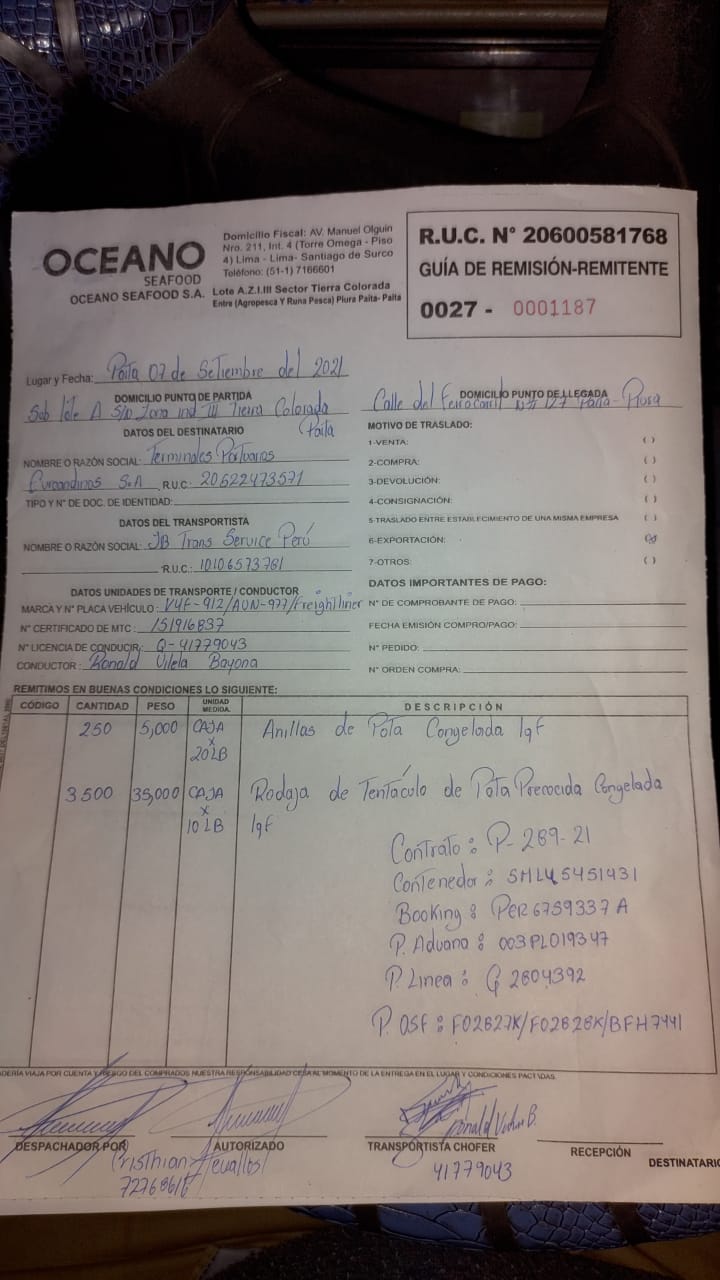 OCEANO
SEAFOOD
OCEANO SEAFOOD S.A.
Domicilio Fiscal: AV. Manuel Olguin
Nro. 211, Int. 4 (Torre Omega - Piso
4) Lima - Lima- Santiago de Surco
Teléfono: (51-1) 7166601
Lote A.Z.I.III Sector Tierra Colorada
Entre (Agropesca Y Runa Pesca) Piura Paita- Paita
R.U.C. N° 20600581768
GUÍA DE REMISIÓN-REMITENTE
0027 - 0001187
Lugar y Fecha: Paita 07 de Setiembre del 2021
DOMICILIO PUNTO DE PARTIDA
Sub lote A S/N Zona ind III Tierra Colorada
Paita
DATOS DEL DESTINATARIO
NOMBRE O RAZÓN SOCIAL: Terminales Portuarios
Euroandinos S.A R.U.C: 20522473571
TIPO Y N° DE DOC. DE IDENTIDAD:
DATOS DEL TRANSPORTISTA
NOMBRE O RAZÓN SOCIAL: JB Trans Service Perú
R.U.C.: 10106573781
DATOS UNIDADES DE TRANSPORTE / CONDUCTOR
MARCA Y N° PLACA VEHÍCULO: V4F-912/AUN-977/Freightliner
N° CERTIFICADO DE MTC: 151916837
N° LICENCIA DE CONDUCIR: Q-41779043
CONDUCTOR: Ronald Vilela Bayona
DOMICILIO PUNTO DE LLEGADA
Calle del Ferrocarril N° 127 Paita- Piura
MOTIVO DE TRASLADO:
1-VENTA: ( )
2-COMPRA: ( )
3-DEVOLUCIÓN: ( )
4-CONSIGNACIÓN: ( )
5-TRASLADO ENTRE ESTABLECIMIENTO DE UNA MISMA EMPRESA ( )
6-EXPORTACIÓN: (X)
7-OTROS: ( )
DATOS IMPORTANTES DE PAGO:
N° DE COMPROBANTE DE PAGO:
FECHA EMISIÓN COMPRO/PAGO:
N° PEDIDO:
N° ORDEN COMPRA:
REMITIMOS EN BUENAS CONDICIONES LO SIGUIENTE:
CÓDIGO CANTIDAD PESO UNIDAD MEDIDA DESCRIPCIÓN
250 5,000 CAJA Anillas de Pota Congelada Iqf
x
20LB
3500 35,000 CAJA Rodaja de Tentáculo de Pota Precocida Congelada
x
10LB Iqf
Contrato: P-289-21
Contenedor: SMLU5451431
Booking: PER6759337A
P. Aduana: 003PL019347
P. Linea: G 2804392
P. OSF: F02827K/F02828K/BFH7441
VIAJA POR CUENTA Y RIESGO DEL COMPRADOR NUESTRA RESPONSABILIDAD CESA AL MOMENTO DE LA ENTREGA EN EL LUGAR Y CONDICIONES PACTADAS.
DESPACHADOR POR
AUTORIZADO
Cristhian Zevallos
72768616
Ronald Vilela B.
TRANSPORTISTA CHOFER
41779043
RECEPCIÓN
DESTINATARIO